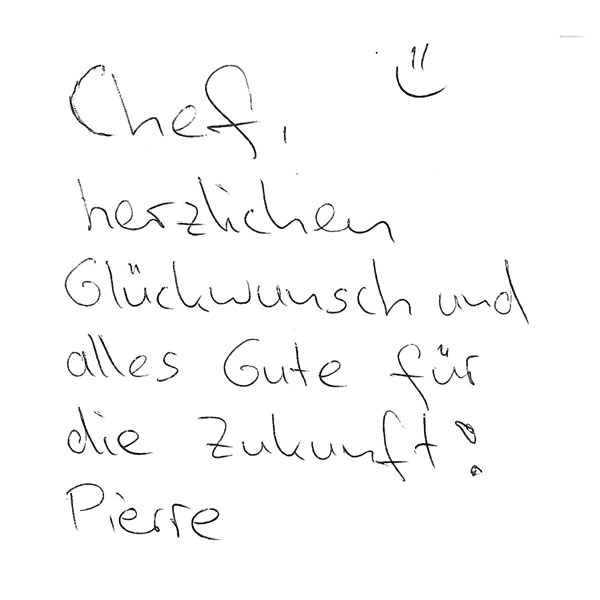 Chef,
herzlichen
Glückwunsch und
alles Gute für
die Zukunft!
Pierre